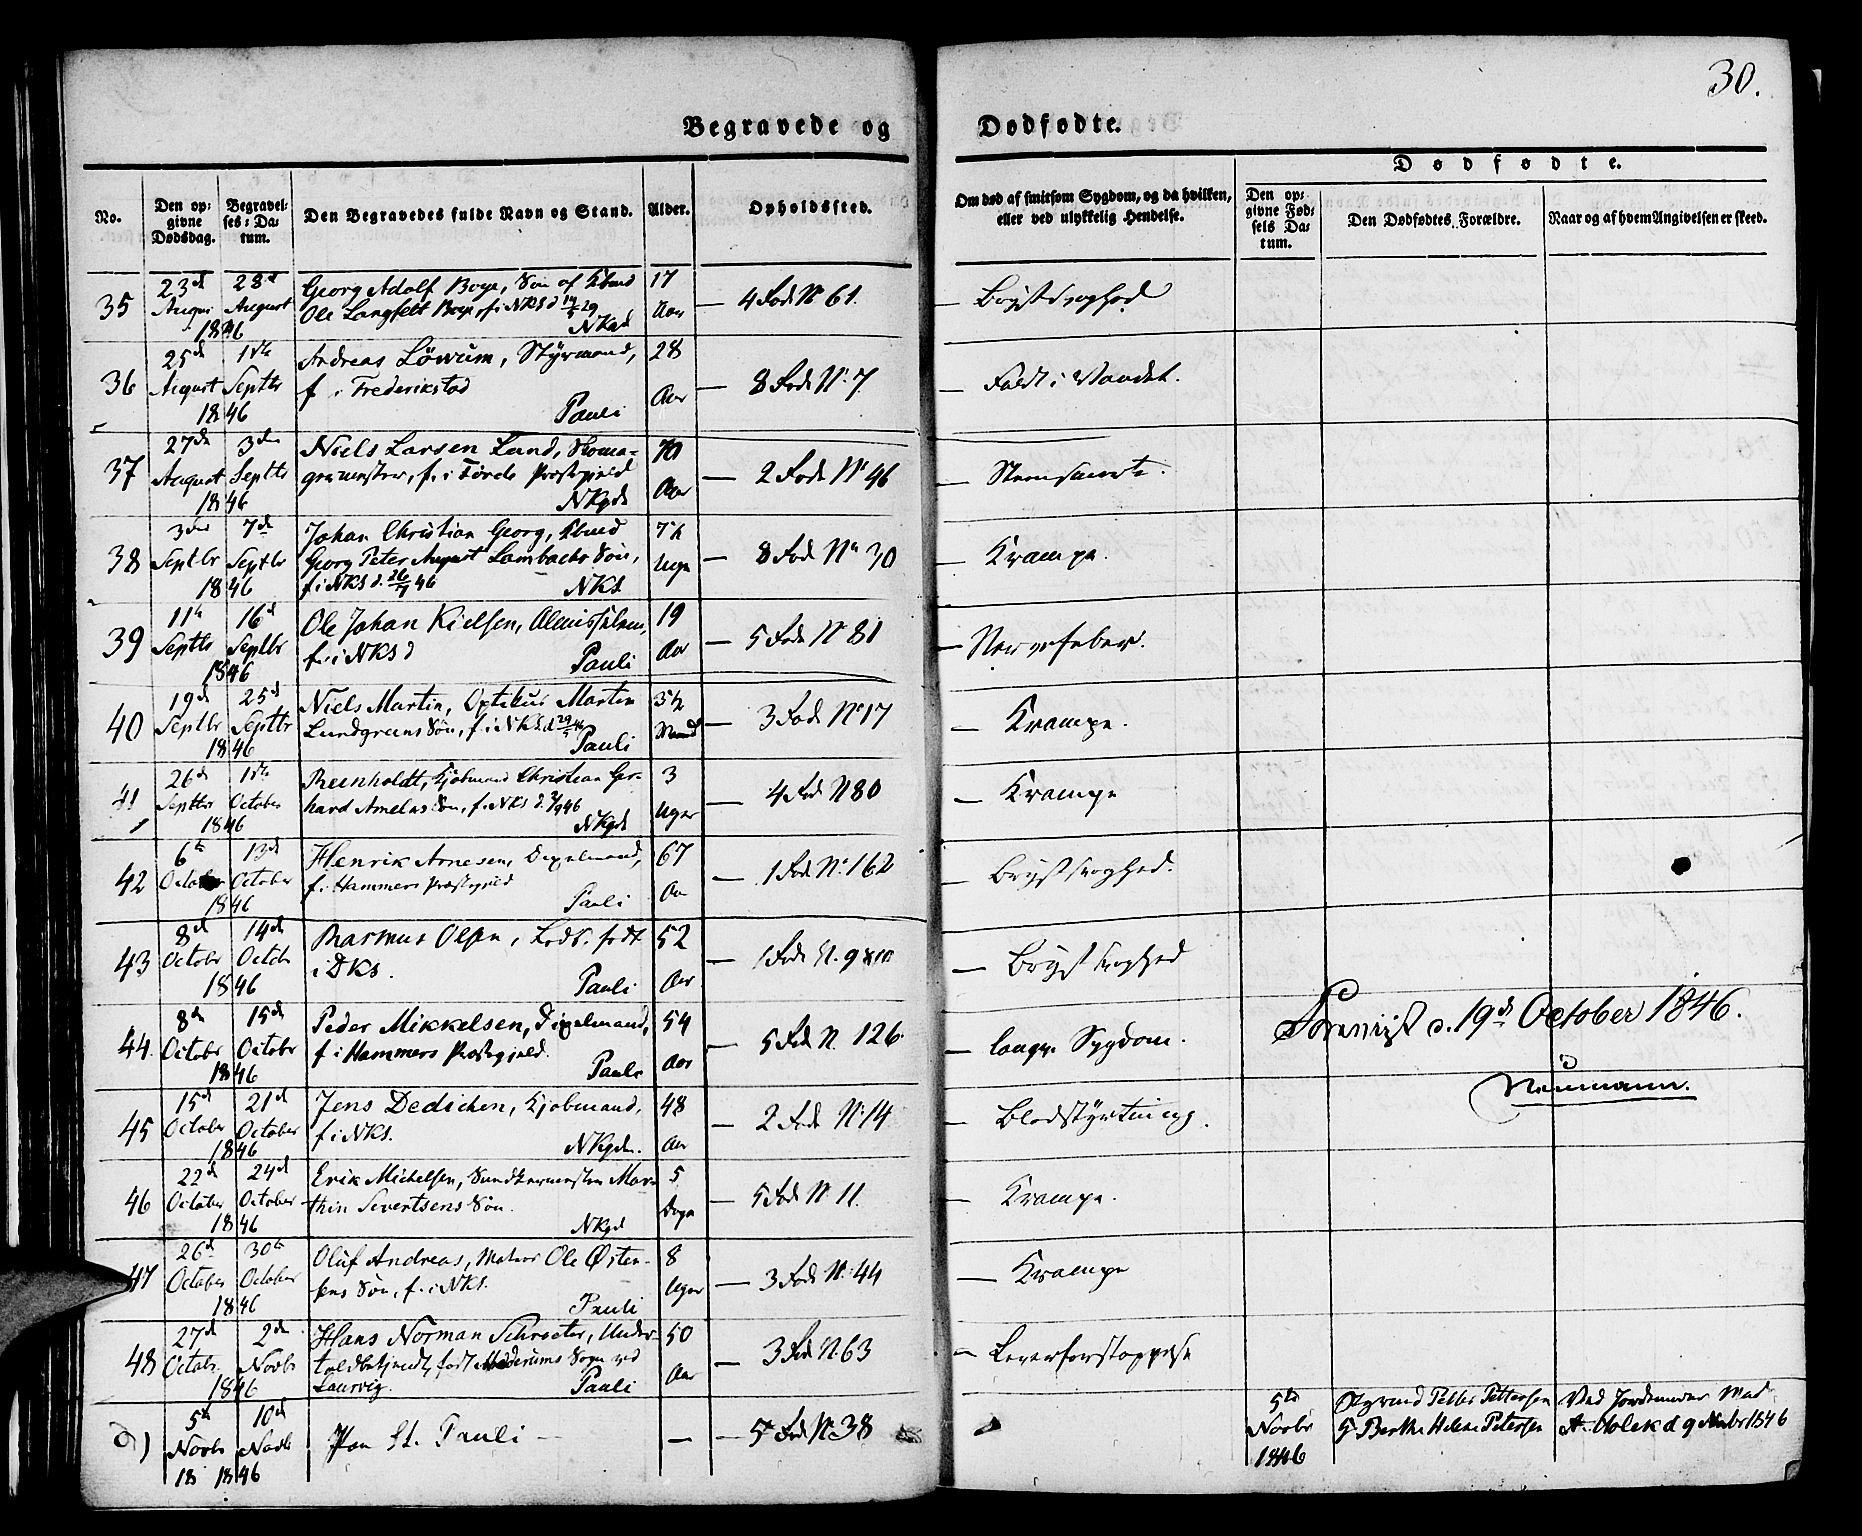 30.
Begravede og Dødfødte.
No.
Den opgivne Dødsdag.
Begravelses-Datum.
Den Begravedes fulde Navn og Stand.
Alder.
Opholdssted.
Om død af smitsom Sygdom, og da hvilken, eller ved ulykkelig Hendelse.
Dødfødte.
Den opgivne Fødsels Datum.
Den Dødfødtes Forældre.
Naar og af hvem Angivelsen er skeed.
35 23d August 1846 28d August Georg Adolf Boye, Søn af
Ole Langfelt Boye, f. i NKS d
NKgd
17 Aar — 4 Rode No 61. — Brystsvaghed
36 25d August 1846 1ste Septbr Andreas Löwum, Styrmand,
f. i Frederikstad
Pauli
28 Aar — 8 Rode No. 7 — Faldt i Vandet.
37 27de August 1846 3die Septbr Niels Larsen Lund, Skoma-
germester, f. i Førde Præstegjeld
NKgd
70 Aar — 2 Rode No 46 —
38 3die Septbr 1846 7de Septbr Johan Christian Georg,
Georg Peter August Lambachs Søn,
f. i NKS d. 46 NKS
Uger — 8 Rode No 30 — Krampe.
39 11te Septbr 1846 16d Septbr Ole Johan Kielsen,
f. i NKS d
Pauli
19 Aar — 5 Rode No 81 — Nervefeber.
40 19de Septbr 1846 25d Septbr Niels Martin, Optikus Martin
Lundgreens Søn, f. i NKS d
Pauli
3½ Maaned — 3 Rode No 17 — Krampe.
41 26de Septbr 1846 1ste October Reinholdt, Kjøbmand Christian Ger-
hard Amelns Søn, f. NKS d. 46
NKgd
3 Uger — 4 Rode No 80 — Krampe
42 6te October 1846 13de October Henrik Arnesen,
f. i Hammers Præstegjeld
Pauli
67 Aar — 1 Rode No. 162 — Brystsvaghed.
43 8de October 1846 14de October Rasmus Olsen, Lods. født
i DKS.
Pauli
52 Aar — 1 Rode N. 9 — Brystsvaghed
44. 8de October 1846 15de October Peder Mikkelsen,
f i Hammers Præstegjeld.
Pauli
54 Aar — 5 Rode N. 126. — Sygdom.
Foreviist d. 19de October 1846.
Neumann.
45 15d October 1846 21d October Jens Dedichen, Kjøbmand,
f. i NKS.
NKgden.
48 Aar — 2 Rode No. 14 — Blodstyrtning.
46 22d October 1846 24d October Erik Michelsen, Mar-
thin Sivertsens Søn.
NKgd
5 Dage — 5 Rode N. 11. — Krampe.
47 26d October 1846 30te October Oluf Andreas, Ole Østen-
sens Søn, f. i NKS.
Pauli
8 Uger — 3 Rode No. 44 — Krampe
48 27d Octobr. 1846 2den Novbr Hans Norman Schrøeter, Under-
toldbetjent, født Sogn ved
Laurvig. Pauli
50 Aar — 3 Rode N. 63 — Leverforstoppelse
d) 5te Novbr 1846 10d Novbr St. Pauli — — — 5 Rode No. 38
5te Novbr 1846
Petter Pettersen
Berthe Helene Petersen
Ved Jordemoder Mad
A. Holck d 9 Novbr 1846